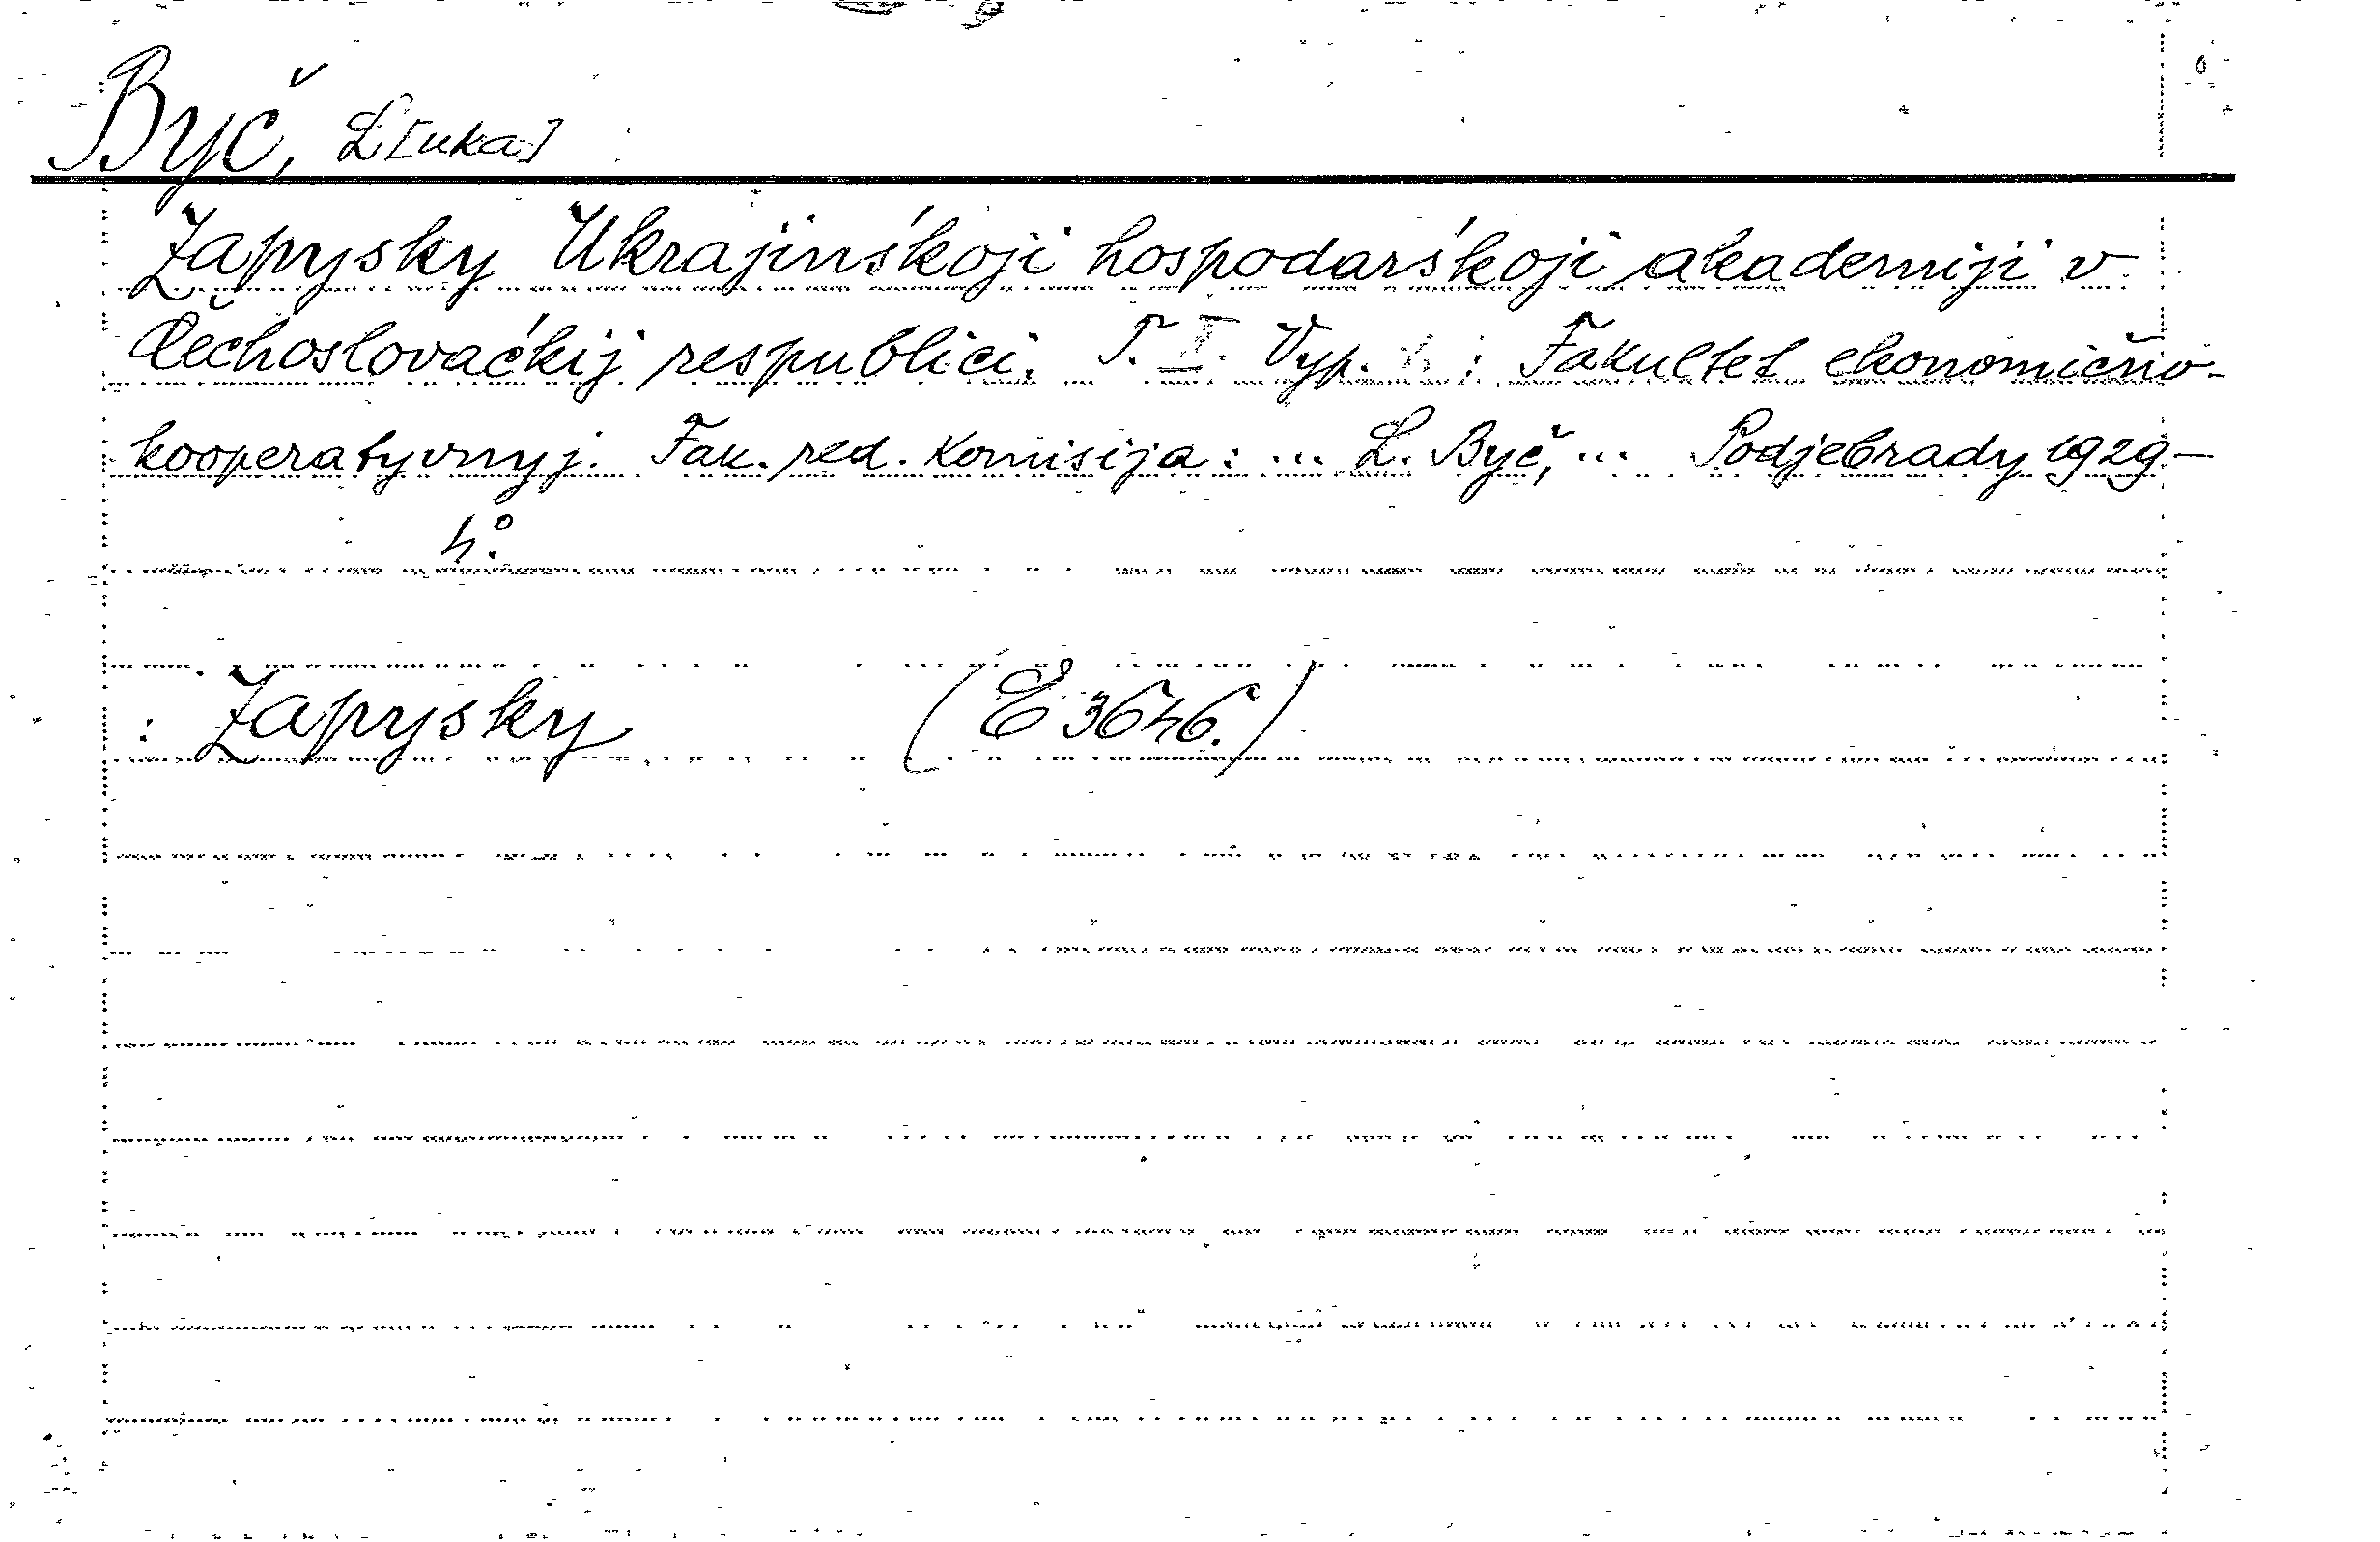 Byč, L[uka]
Zapysky Ukrajinśkoji hospodarśkoji akademiji v
Čechoslovaćkij respublici. T. I. Vyp. : Fakultet ekonomično-
kooperatyvnyj. Fak. red. komisija: ... L. Byč, ... Podjebrady 1929-
4°.
: Zapysky (E 3646.)